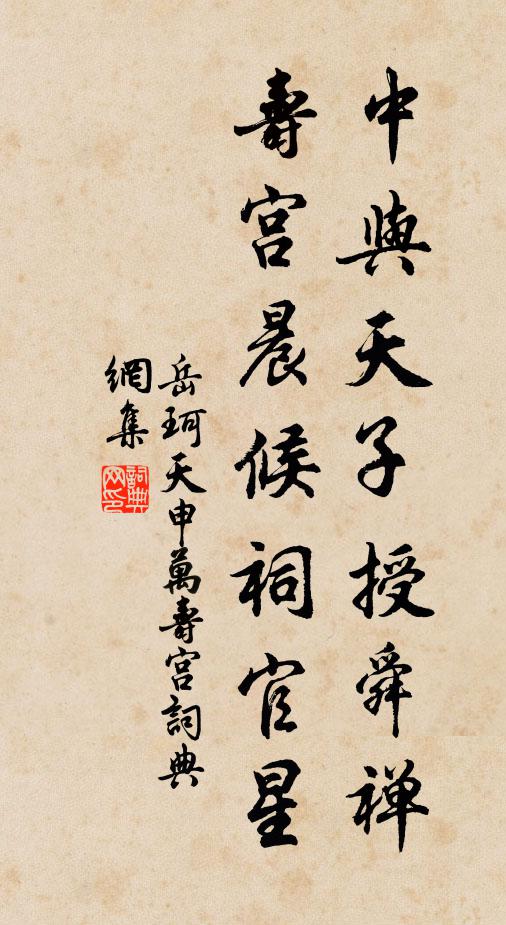 中與天子授舜禅
壽宮晨候祠官星
岳珂天申萬壽宮詞典
網集
詞典網印